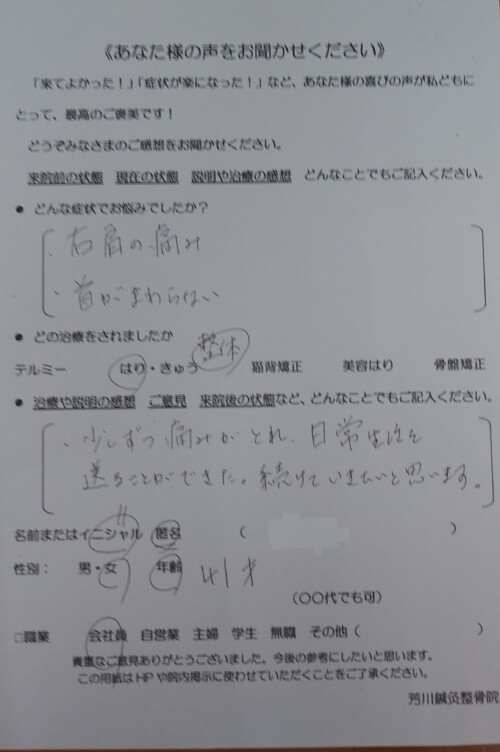 《あなた様の声をお聞かせください》
「来てよかった！」「症状が楽になった！」など、あなた様の喜びの声が私どもに
とって、最高のご褒美です！
どうぞみなさまのご感想をお聞かせください。
来院前の状態　現在の状態　説明や治療の感想　どんなことでもご記入ください。
● どんな症状でお悩みでしたか？
・右肩の痛み
・首がまわらない
● どの治療をされましたか
整体
テルミー　はり・きゅう　猫背矯正　美容はり　骨盤矯正
● 治療や説明の感想　ご意見　来院後の状態など、どんなことでもご記入ください。
・少しずつ痛みがとれ、日常生活を
送ることができた。続けていきたいと思います。
名前またはイニシャル　匿名　（　　　）
性別：　男・女　年齢　41才
（〇〇代でも可）
□職業　会社員　自営業　主婦　学生　無職　その他（　　　）
貴重なご意見ありがとうございました。今後の参考にしたいと思います。
この用紙はHPや院内掲示に使わせていただくことをご了承ください。
芳川鍼灸整骨院